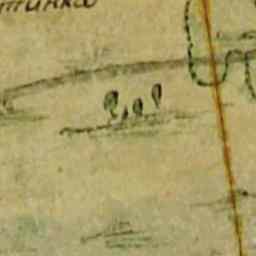 тинка